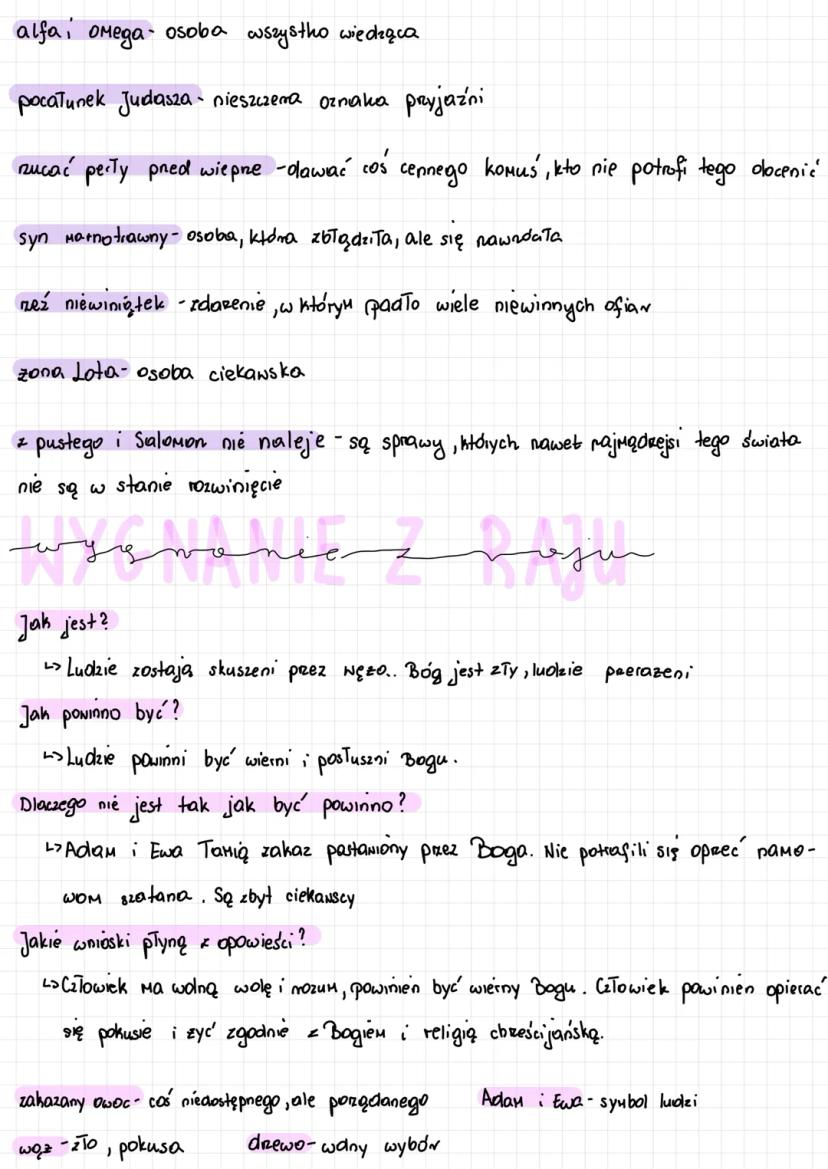 alfa i omega - osoba wszystko wiedząca
pocałunek Judasza - nieszczera oznaka przyjaźni
rzucać perły przed wieprze - dawać coś cennego komuś, kto nie potrafi tego docenić
syn marnotrawny - osoba, która zbłądziła, ale się nawróciła
rzeź niewiniątek - zdarzenie, w którym padło wiele niewinnych ofiar
żona Lota - osoba ciekawska
z pustego i Salomon nie naleje - są sprawy, których nawet najmądrzejsi tego świata
nie są w stanie rozwinięcie
WYGNANIE Z RAJU
wygnanie z raju
Jak jest?
↳ Ludzie zostają skuszeni przez węża.. Bóg jest zły, ludzie przerażeni
Jak powinno być?
↳ Ludzie powinni być wierni i posłuszni Bogu.
Dlaczego nie jest tak jak być powinno?
↳ Adam i Ewa łamią zakaz postawiony przez Boga. Nie potrafili się oprzeć namo-
wom szatana. Są zbyt ciekawscy
Jakie wnioski płyną z opowieści?
↳ Człowiek ma wolną wolę i rozum, powinien być wierny Bogu. Człowiek powinien opierać
się pokusie i żyć zgodnie z Bogiem i religią chrześcijańską.
zakazany owoc - coś niedostępnego, ale pożądanego Adam i Ewa - symbol ludzi
wąż - zło, pokusa drzewo - wolny wybór